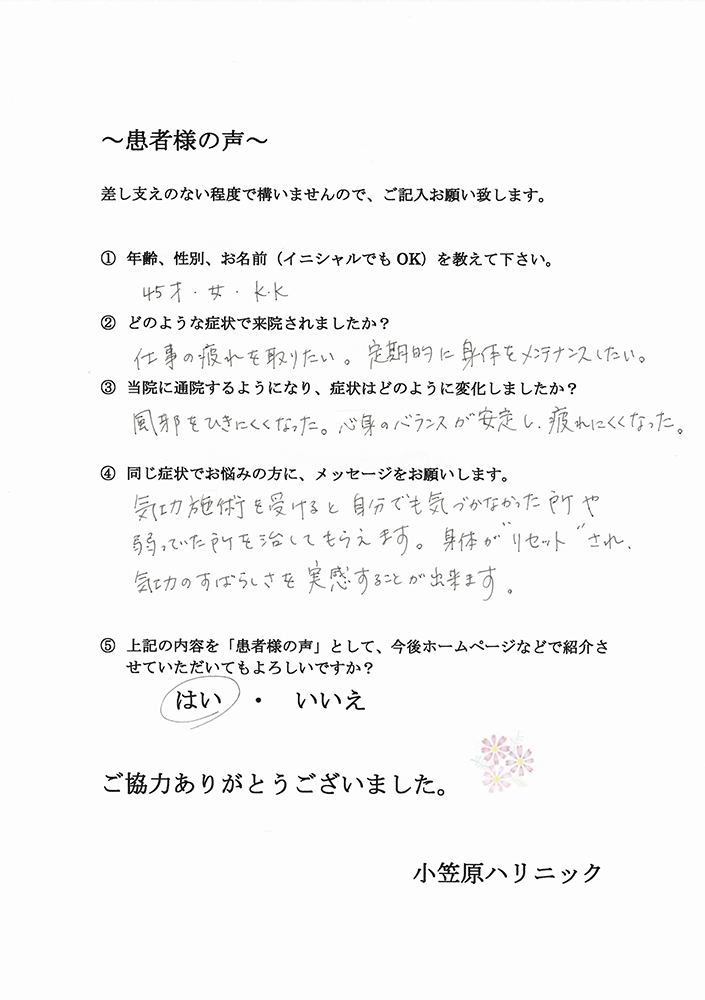 ～患者様の声～
差し支えのない程度で構いませんので、ご記入お願い致します。
① 年齢、性別、お名前（イニシャルでもOK）を教えて下さい。
45才・女・K.K
② どのような症状で来院されましたか？
仕事の疲れを取りたい。定期的に身体をメンテナンスしたい。
③ 当院に通院するようになり、症状はどのように変化しましたか？
風邪をひきにくくなった。心身のバランスが安定し、疲れにくくなった。
④ 同じ症状でお悩みの方に、メッセージをお願いします。
気功施術を受けると自分でも気づかなかった所や
弱っていた所を治してもらえます。身体が"リセット"され、
気功のすばらしさを実感することが出来ます。
⑤ 上記の内容を「患者様の声」として、今後ホームページなどで紹介さ
せていただいてもよろしいですか？
はい ・ いいえ
ご協力ありがとうございました。
小笠原ハリニック